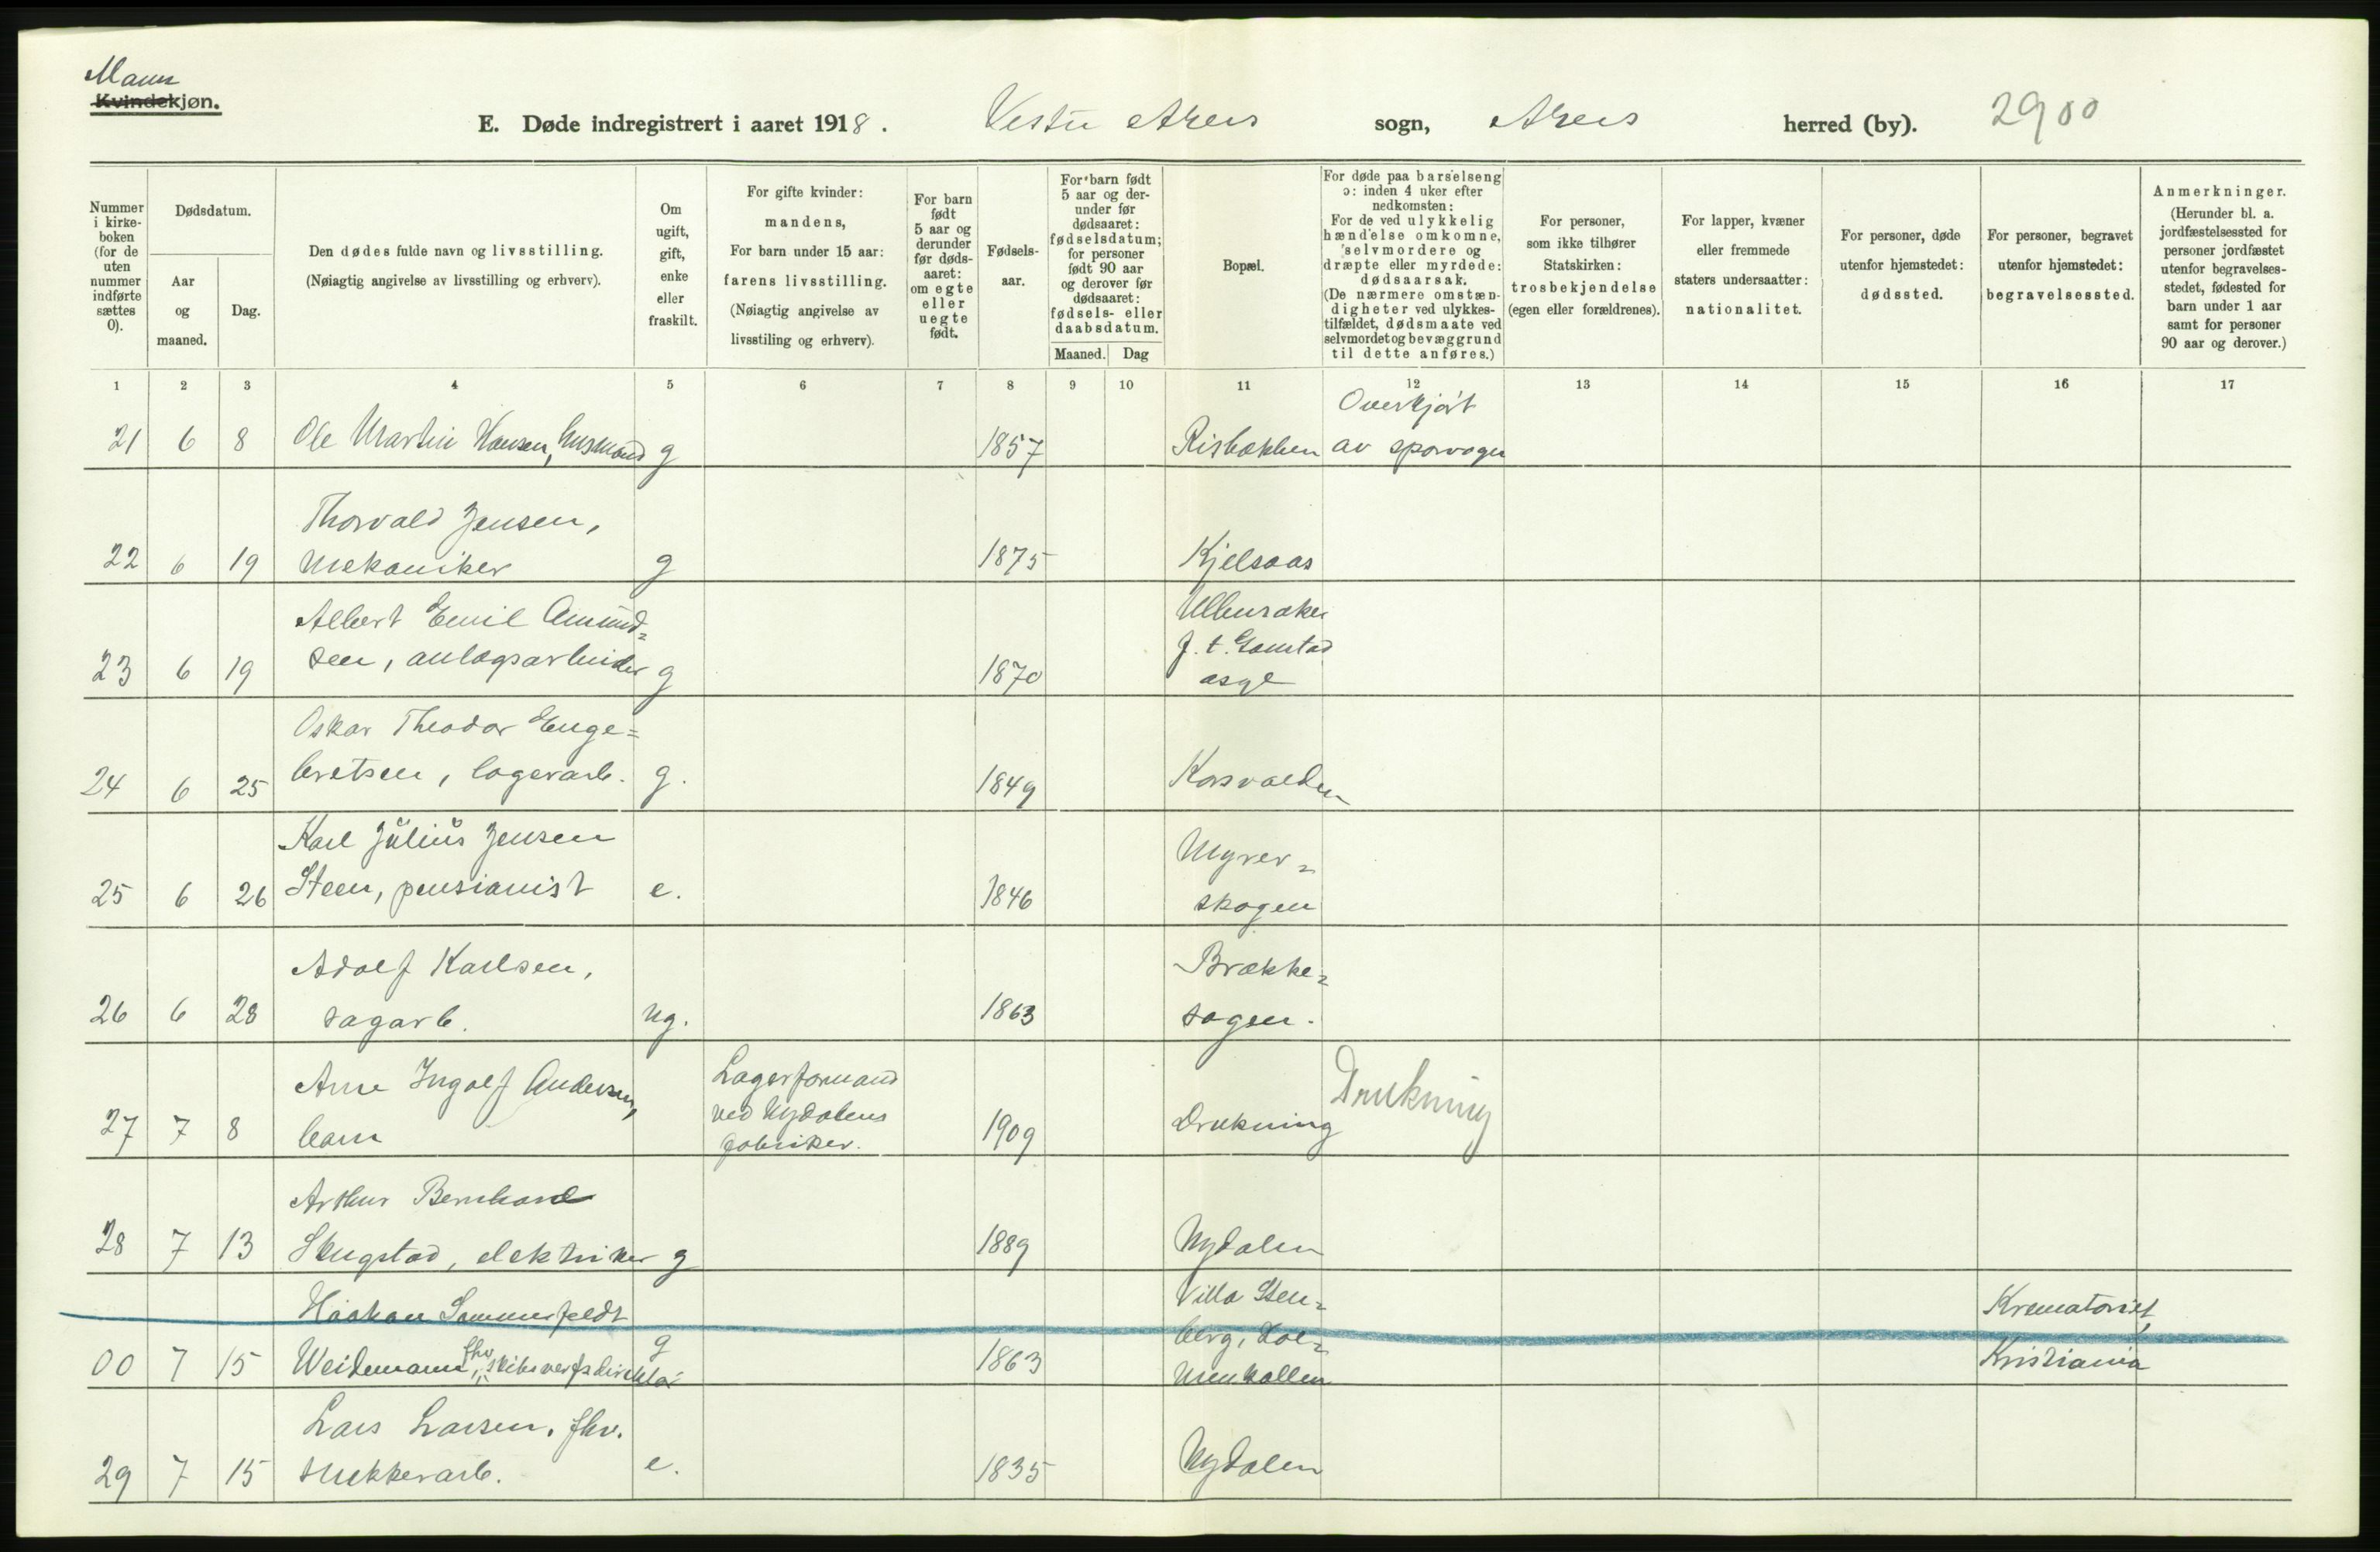 Mann
Kvindekjøn.
E. Døde indregistrert i aaret 1918. Vestre Akers sogn, Akers herred (by). 2900
Nummer i kirke-boken (for de uten nummer indførte sættes 0).
Dødsdatum.
Aar og maaned.
Dag.
Den dødes fulde navn og livsstilling.
(Nøiagtig angivelse av livsstilling og erhverv).
Om ugift, gift, enke eller fraskilt.
For gifte kvinder: mandens,
For barn under 15 aar: farens livsstilling.
(Nøiagtig angivelse av livsstiling og erhverv).
For barn født 5 aar og derunder før døds-aaret: om egte eller uegte født.
Fødsels-aar.
For barn født 5 aar og der-under før dødsaaret: fødselsdatum; for personer født 90 aar og derover før dødsaaret: fødsels- eller daabsdatum.
Maaned. Dag
Bopæl.
For døde paa barselseng ɔ: inden 4 uker efter nedkomsten:
For de ved ulykkelig hændelse omkomne, selvmordere og dræpte eller myrdede: dødsaarsak.
(De nærmere omstæn-digheter ved ulykkes-tilfældet, dødsmaate ved selvmordet og bevæggrund til dette anføres.)
For personer, som ikke tilhører Statskirken: trosbekjendelse (egen eller forældrenes).
For lapper, kvæner eller fremmede staters undersaatter: nationalitet.
For personer, døde utenfor hjemstedet: dødssted.
For personer, begravet utenfor hjemstedet: begravelsessted.
Anmerkninger.
(Herunder bl. a. jordfæstelsessted for personer jordfæstet utenfor begravelses-stedet, fødested for barn under 1 aar samt for personer 90 aar og derover.)
1 2 3 4 5 6 7 8 9 10 11 12 13 14 15 16 17
Overkjørt
21 6 8 Ole Martin Hansen, husmand g 1857 Risbakken av sporvogn
Thorvald Jensen,
22 6 19 mekaniker g 1875 Kjelsaas
Albert Emil Amund=
Ullensaker
23 6 19 sen, anlægsarbeider g 1870 f. t. Gaustad
asyl
Oskar Theodor Enge=
24 6 25 bretsen, lagerarb. g. 1849 Korsvolden
Karl Julius Jensen
Myrer=
25 6 26 Steen, pensionist e. 1846 skogen
Adolf Karlsen,
Brække=
26 6 28 sagarb. ug. 1863 sagen.
Arne Ingolf Andersen,
Lagerformand
27 7 8 barn ved Nydalens 1909 Drukning Drukning
fabriker.
Arthur Bernhard
28 7 13 Skugstad, elektriker g 1889 Nydalen
Haakon Sommerfeldt Villa Sten= Krematoriet,
00 7 15 Weidemann, fhv. skibsverfsdirektør g 1863 berg, Hol= Kristiania
menkollen
Lars Larsen, fhv.
29 7 15 stukkerarb. e. 1835 Nydalen